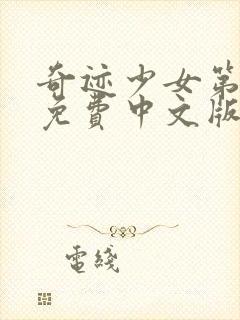 奇迹少女第
免費中文版
電綫